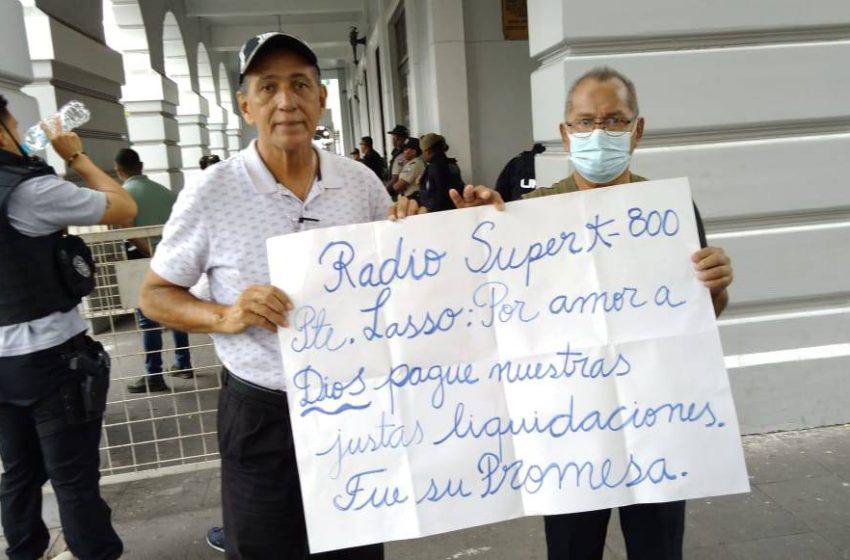 Radio Super K-800
Pte. Lasso: Por amor a
Dios pague nuestras
justas liquidaciones.
Fue su Promesa.